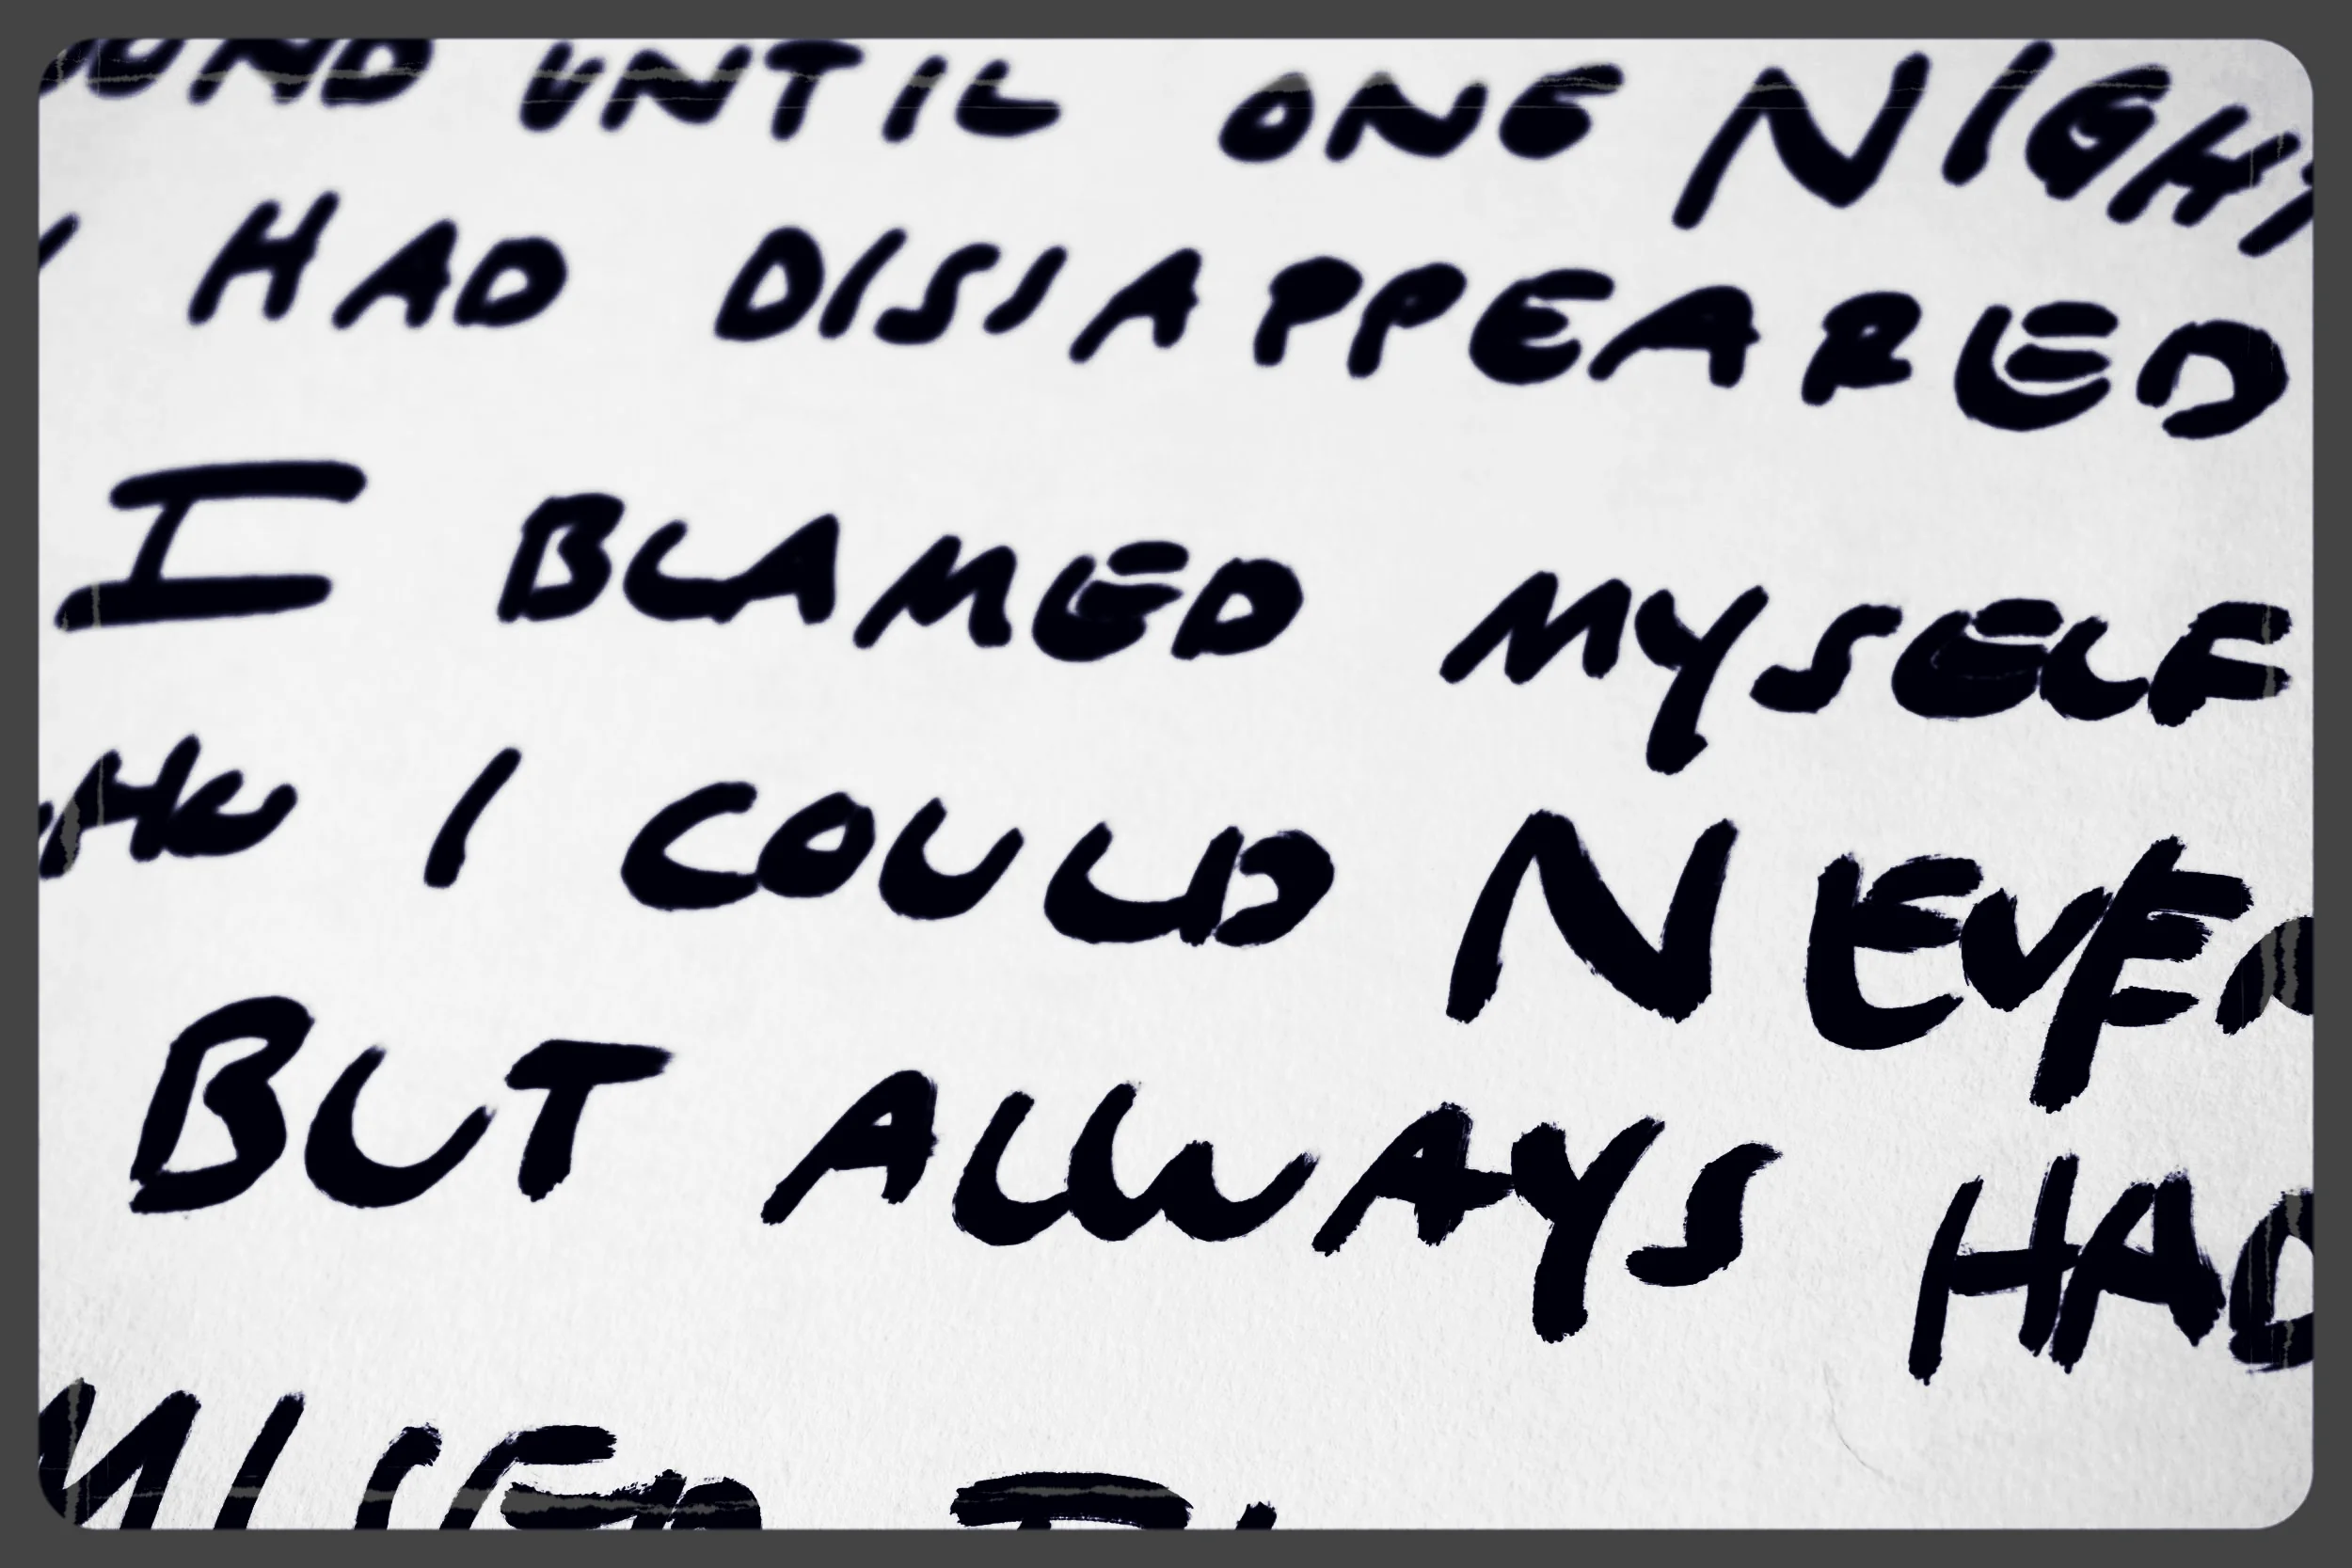 UNTIL ONE NIGHT
HAD DISIAPPEARED
I BLAMED MYSELF
I COULD NEVER
BUT ALWAYS HAD